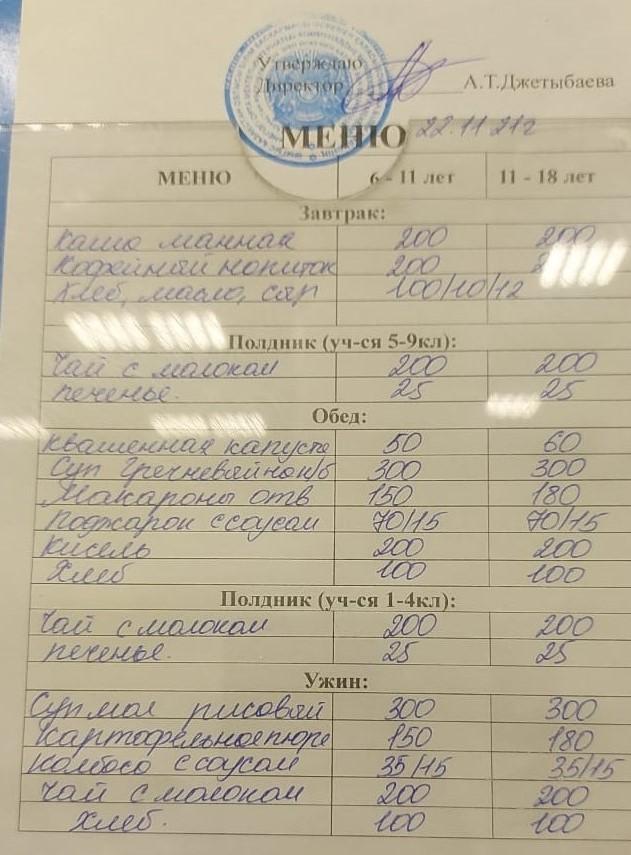 Утверждаю
Директор А.Т.Джетыбаева
МЕНЮ 22.11 21г
МЕНЮ 6 - 11 лет 11 - 18 лет
Завтрак:
Каша манная 200 200
Кофейный напиток 200
Хлеб, масло, сыр 100/10/12
Полдник (уч-ся 5-9кл):
Чай с молоком 200 200
печенье. 25 25
Обед:
Квашенная капуста 50 60
Суп Гречневый на к/б 300 300
Макароны отв 150 180
Поджарок с соусом 70/15 70/15
Кисель 200 200
Хлеб 100 100
Полдник (уч-ся 1-4кл):
Чай с молоком 200 200
печенье. 25 25
Ужин:
Суп мол рисовый 300 300
Картофельное пюре 150 180
Колбаса с соусом 35/15 35/15
Чай с молоком 200 200
Хлеб. 100 100